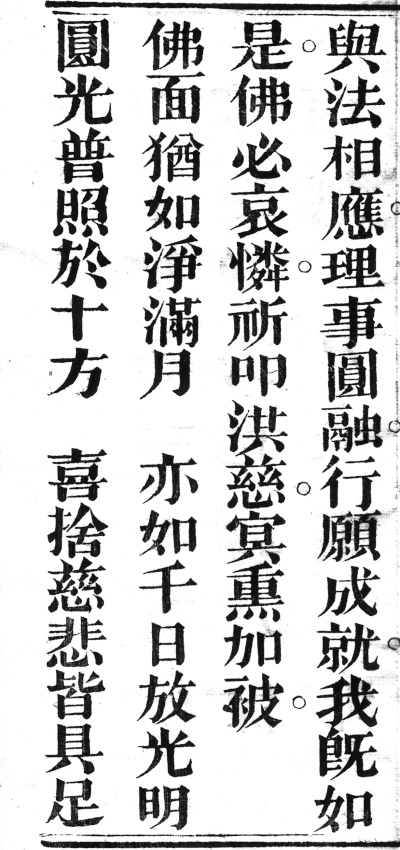 與法相應理事圓融行願成就我旣如
是佛必哀憐祈叩洪慈冥熏加被
佛面猶如淨滿月　亦如千日放光明
圓光普照於十方　喜捨慈悲皆具足